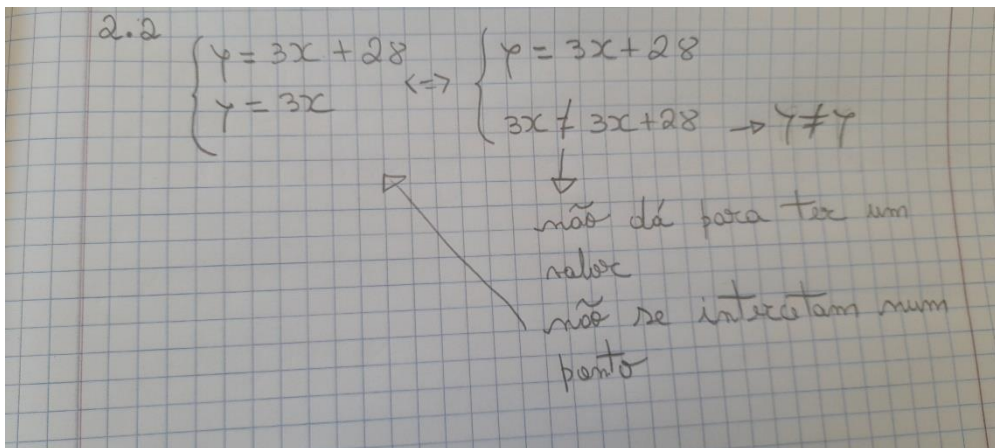 2.2
{ y = 3x + 28 <=> { y = 3x + 28
{ y = 3x { 3x ≠ 3x + 28 → y ≠ y
não dá para ter um
valor
não se intercetam num
ponto